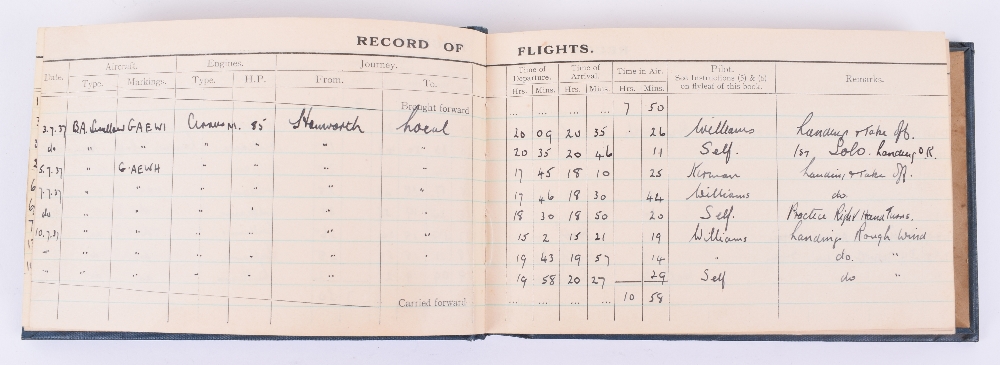 RECORD OF FLIGHTS.
Date. Aircraft. Engines. Journey. Time of Departure. Time of Arrival. Time in Air. Pilot. See Instructions (5) & (6) on flyleaf of this book. Remarks.
Type. Markings. Type. H.P. From. To. Hrs. Mins. Hrs. Mins. Hrs. Mins.
Brought forward ... ... ... ... 7 50
3.7.37 B.A. Swallow G-AEWI Cirrus M. 85 Hanworth Local 20 09 20 35 . 26 Williams Landing & Take Off.
do " " " " " " 20 35 20 46 11 Self. 1st Solo. Landing O.K.
5.7.37 " G-AEWH " " " " 17 45 18 10 25 Kerman Landing & Take Off.
7.7.37 " " " " " " 17 46 18 30 44 Williams do.
do " " " " " " 18 30 18 50 20 Self. Practice Right Hand Turns.
10.7.37 " " " " " " 15 2 15 21 19 Williams Landing Rough Wind
" " " " " " " 19 43 19 57 14 " do. "
" " " " " " " 19 58 20 27 29 Self do "
Carried forward ... ... ... ... 10 58